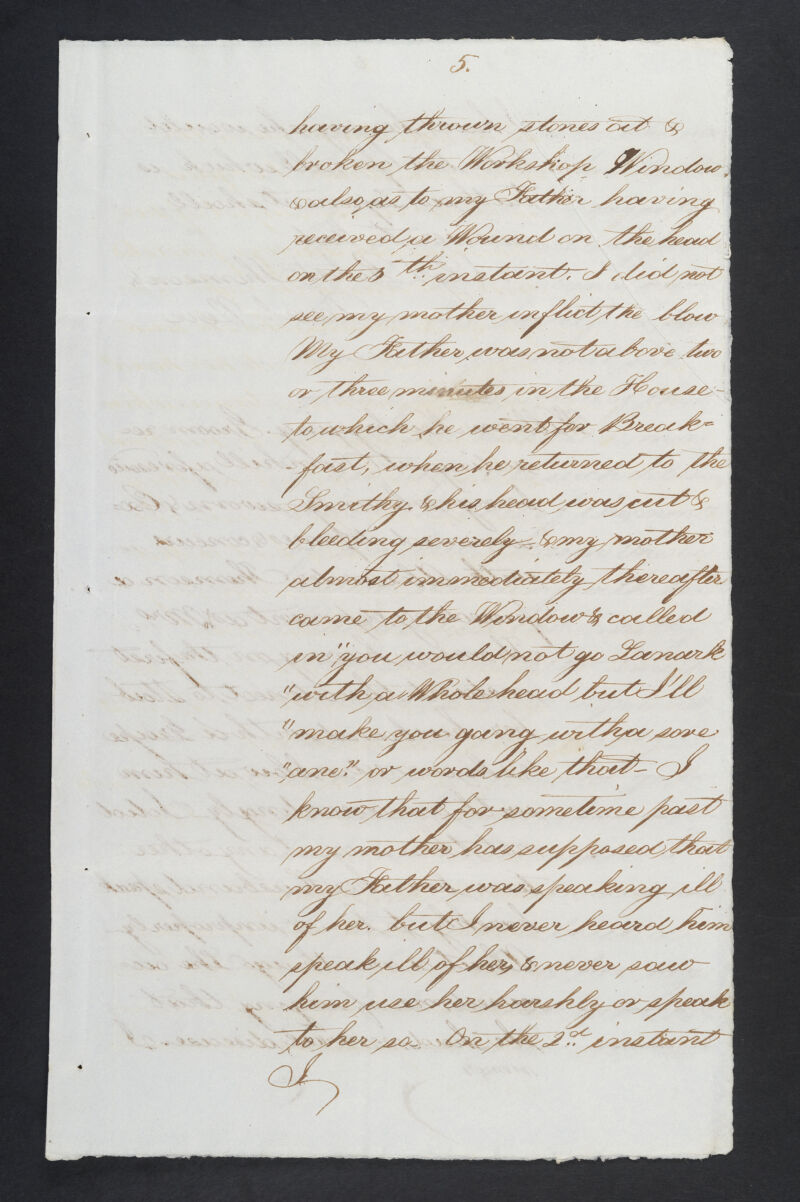 5.
having thrown stones at &
broken the Workshop Window,
& also as to my Father having
received a Wound on the head
on the 5th instant. I did not
see my mother inflict the blow
My Father was not above two
or three minutes in the House
to which he went for Break=
fast, when he returned to the
Smithy & his head was cut &
bleeding severely & my mother
almost immediately thereafter
came to the Window & called
in "you would not go Lanark
"with a Whole head but I'll
"make you going with a sore
"ane." or words like that - I
know that for sometime past
my mother has supposed that
my Father was speaking ill
of her. but I never heard him
speak ill of her, & never saw
him use her harshly or speak
to her so. On the 2d. instant
I